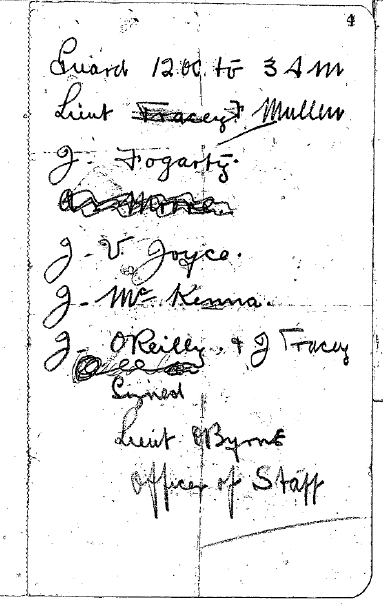 4
Guard 12 00. to 3 A M
Lieut Tracey F. Mullen
J. Fogarty.
J. V. Joyce.
J. McKenna.
J. O'Reilly, & J Tracey
Signed
Lieut O'Byrne
Officer of Staff